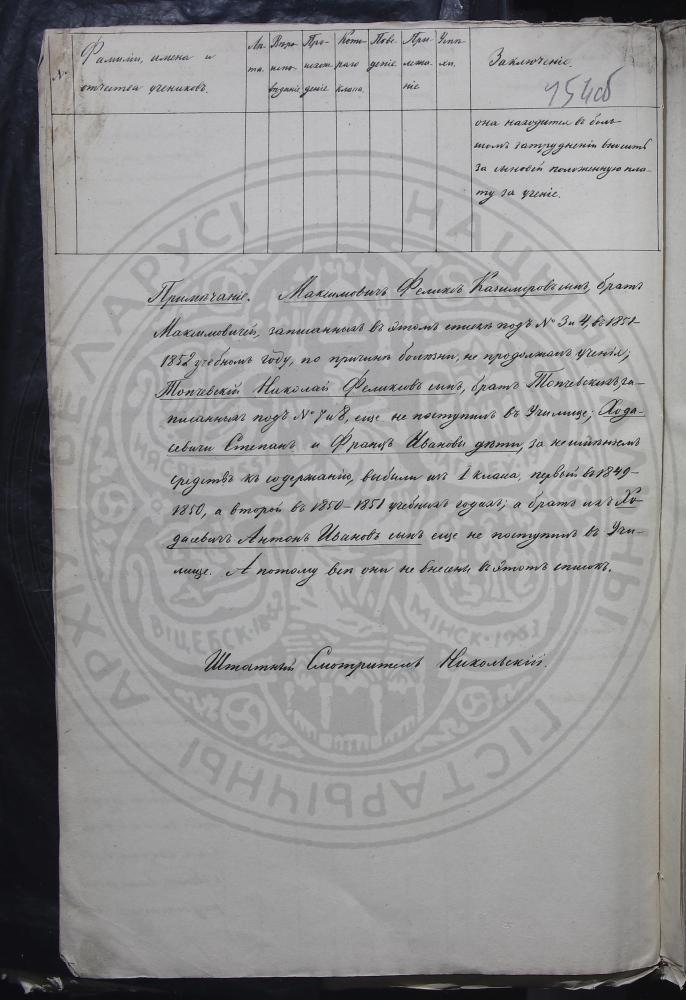 №
Фамиліи, имена и
отчества учениковъ.
Лѣ-
та.
Вѣро-
испо-
вѣданіе
Про-
исхож-
деніе
Кото-
раго
класса.
Пове-
деніе
При-
лежа-
ніе
Успѣ-
хи.
Заключеніе.
она находится въ боль-
шомъ затрудненіи вносить
за сыновей положенную пла-
ту за ученіе.
Примѣчаніе. Максимовичъ Феликсъ Казимировъ сынъ, братъ
Максимовичей, записанныхъ въ этомъ спискѣ подъ № 3 и 4, въ 1851-
1852 учебномъ году, по причинѣ болѣзни, не продолжалъ ученія;
Топчевскій Николай Феликсовъ сынъ, братъ Топчевскихъ за-
писанныхъ подъ № 7 и 8, еще не поступилъ въ Училище; Хода-
севичи Степанъ и Францъ Ивановы дѣти, за неимѣніемъ
средствъ къ содержанію, выбыли изъ I класса, первый въ 1849-
1850, а второй въ 1850-1851 учебныхъ годахъ; а братъ ихъ Хо-
дасевичъ Антонъ Ивановъ сынъ еще не поступилъ въ Учи-
лище. А потому всѣ они не внесены въ этотъ списокъ.
Штатный Смотритель Никольскій.
НАЦЫЯНАЛЬНЫ ГІСТАРЫЧНЫ АРХІЎ БЕЛАРУСІ
ВІЦЕБСК·1862
МІНСК·1963